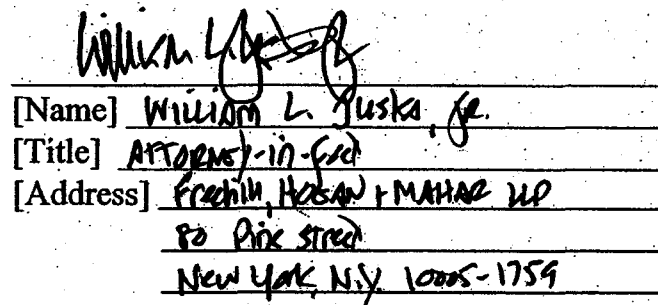 William L.
[Name] William L. Juska, Jr.
[Title] Attorney-in-fact
[Address] Freehill, Hogan + Mahar LLP
80 Pine Street
New York, N.Y. 10005-1759